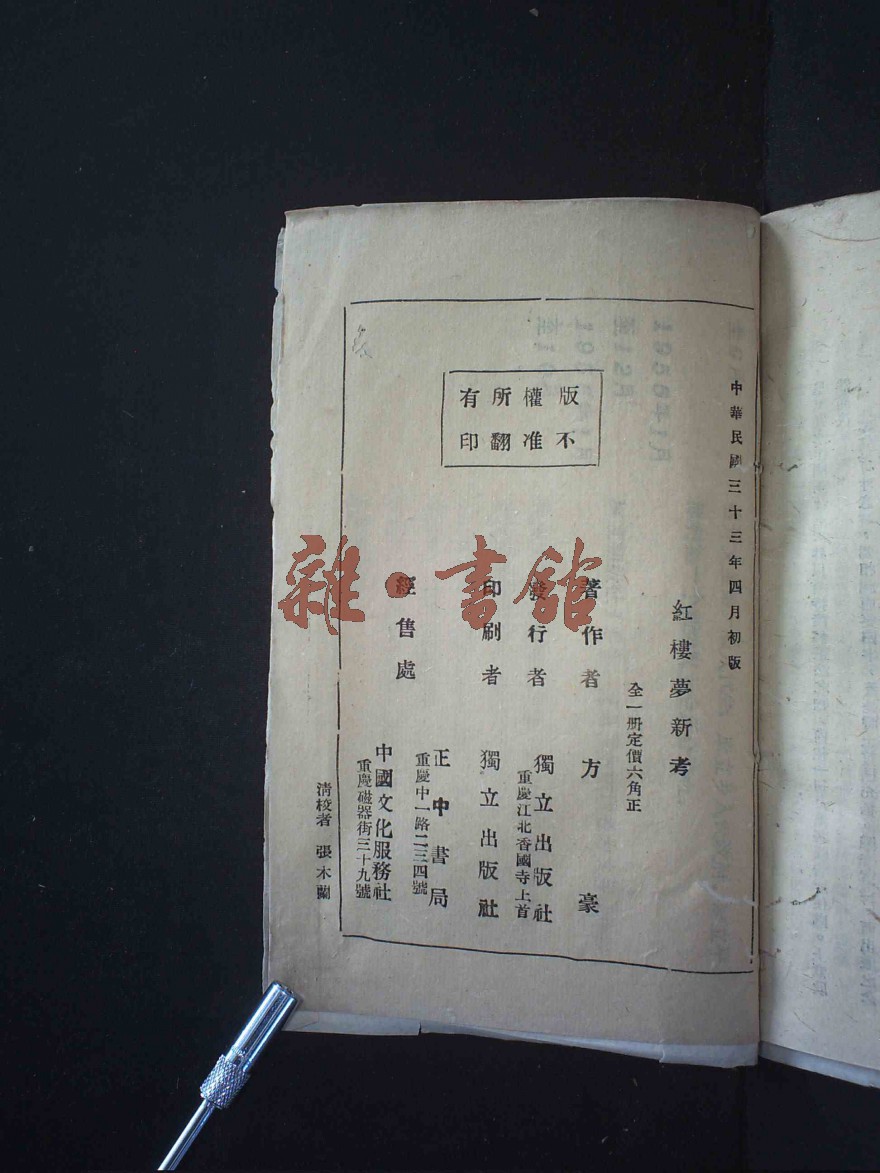 中華民國三十三年四月初版
紅樓夢新考
全一册定價六角正
版權所有
不准翻印
著作者 方豪
發行者 獨立出版社
重慶江北香國寺上首
印刷者 獨立出版社
經售處
正中書局
重慶中一路二三四號
中國文化服務社
重慶磁器街三十九號
清校者 張木蘭
雜·書館